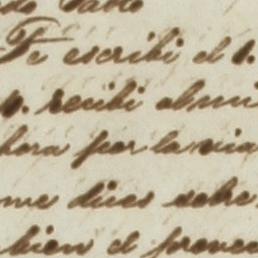 do Pablo
Te escribi el 1.
p. recibi al mi
hora por la via
me dices sobre
bien el provec